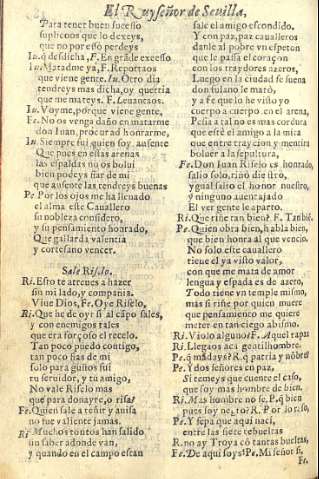 El Ruyseñor de Seuilla,
Para tener buen sucesso
suplicoos que lo dexeys,
que no por esso perdeys
In. q̃ desdicha, F. En grãde excesso
Iu. Matadme ya, F. Reportaos
que viene gente, Iu. Otro dia
tendreys mas dicha, oy querria
que me mateys. F. Leuantaos.
Iu. Voyme, porque viene gente,
Fe. No os venga daño en matarme
don Iuan, procurad honrarme,
In. Siempre fui quien soy, ausente
Que pues en estas arenas
las espaldas no os bolui
bien podeys fiar de mi
que ausente las tendreys buenas
Pe. Por los ojos me ha lleuado
el alma este Cauallero
su nobleza considero,
y su pensamiento honrado,
Que gallarda valentia
y cortesano vencer.
Sale Riselo.
Ri. Esto te atreues a hazer
sin mi lado, y compañia.
Viue Dios, Fe. Oye Riselo,
Ri. Que he de oyr si al cãpo sales,
y con enemigos tales
que era forçoso el recelo.
Tan poco puedo contigo,
tan poco fias de mi
solo para gustos fui
tu seruidor, y tu amigo,
No vale Riselo mas
que para donayre, o risa?
Fe. Quien sale a reñir y auisa
no fue valiente jamas.
Ri. Muchos tontos han salido
sin saber adonde van,
y quando en el campo estan
sale el amigo escondido.
Y con paz, paz caualleros
danle al pobre vn espeton
que le passa el coraçon
con los traydores azeros,
Luego en la ciudad se suena
don fulano le matò,
y a fe que lo he visto yo
cuerpo a cuerpo en el arena,
Pesia a tal no es mas cordura
que esté el amigo a la mira
que entre traycion y mentira
boluer a la sepultura,
Fe. Don Iuan Riselo es honrado,
salio solo, riñò diestro,
y ygual salio el honor nuestro,
y ninguno auentajado
El ver gente le aparto.
Ri. Que riñe tan bien? F. Tambiẽ.
Pe. Quien obra bien, habla bien,
que bien honra al que vencio.
No solo este cauallero
tiene el ya visto valor,
con que me mata de amor
lengua y espada es de azero,
Todo tiene vn temple mismo,
mas si riñe por quien muere
que pensamiento me quiere
meter en tan ciego abismo.
Ri. Viuo alguno? F. Aquel tapas
Ri. Llegaos acà gentilhombre,
Pe. q̃ mãdays? R. q̃ patria y nõbre?
Pe. Y dos señores en paz,
Si temeys que cuente el caso,
que soy mas hombre de bien.
Ri. Mas hombre no se. P. q̃ bien
pues soy negror R. Por los so,
Pe. Y sepa que aqui nací,
entre las siete rebueltas
R. no ay Troya có tantas bueltas,
F. De aqui soys? Pe. Mi señor si,
Fe.